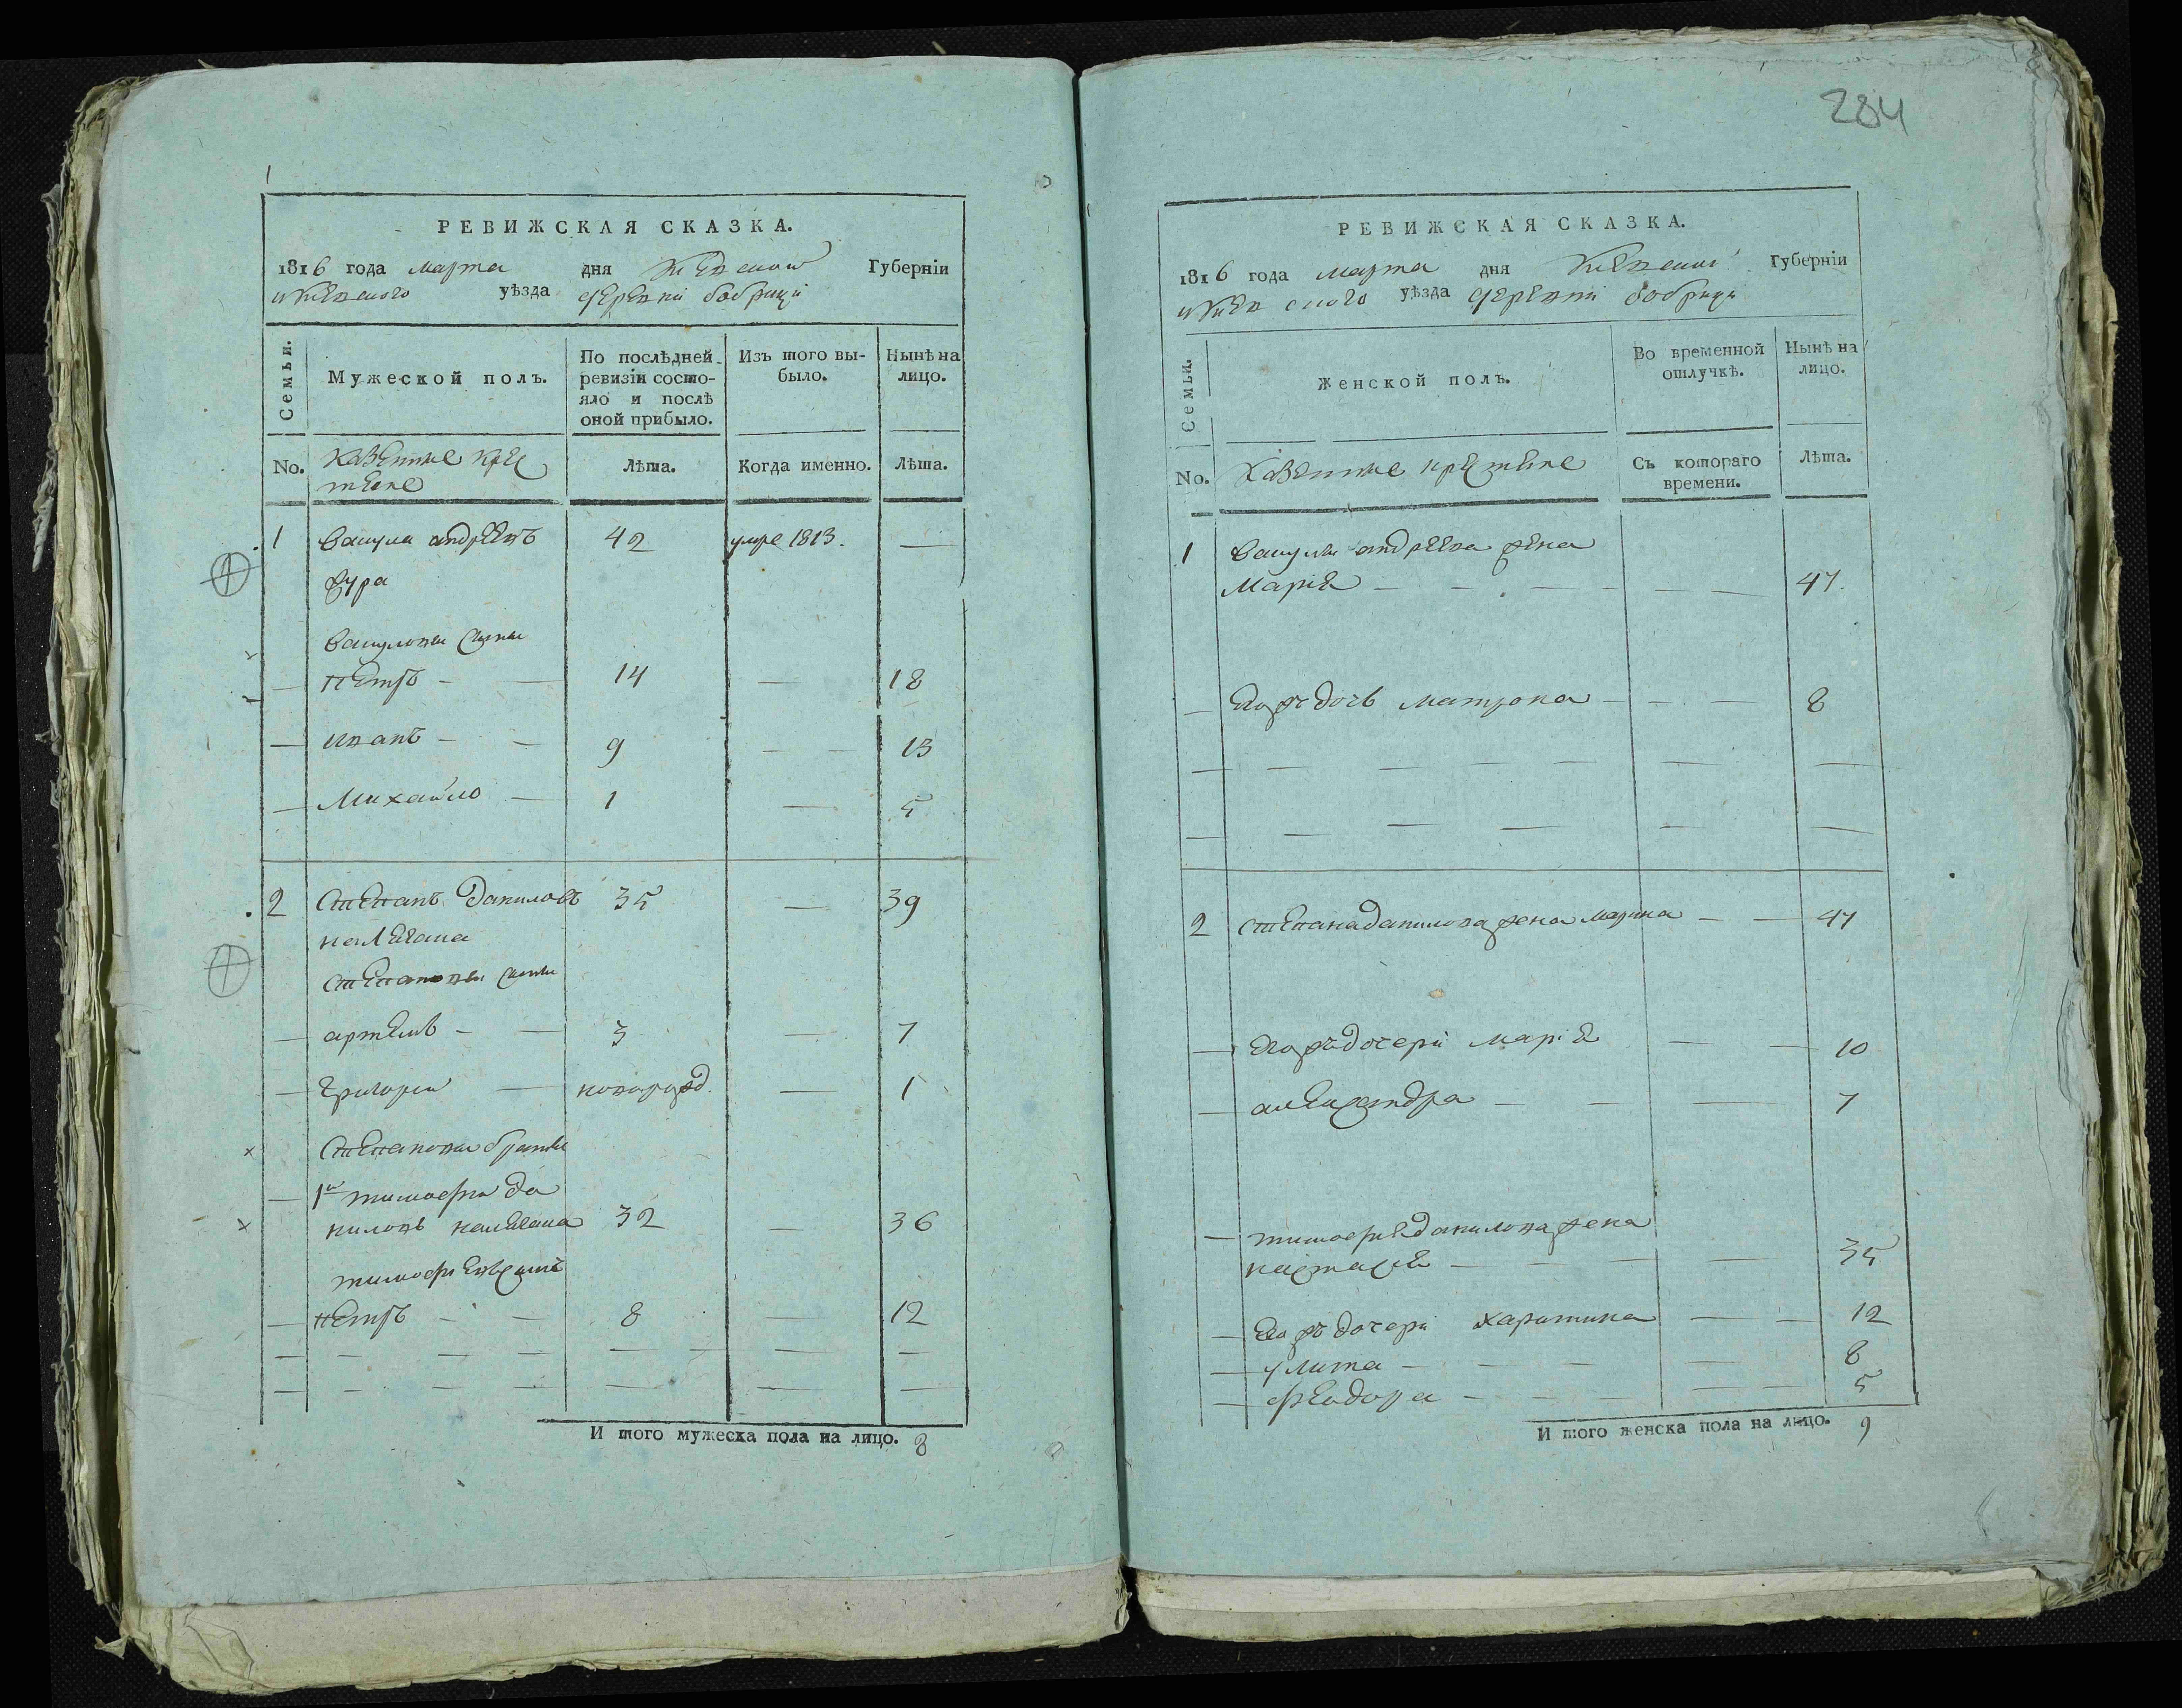 284
РЕВИЖСКАЯ СКАЗКА.
1816 года марта дня Киевской Губерніи
и Киевского уѣзда деревни бобрици
Семьи.
Мужеской полъ.
По послѣдней ревизіи состо-
яло и послѣ
оной прибыло.
Изъ того вы-
было.
Нынѣ на
лицо.
No.
казенние крес
тяне
Лѣта.
Когда именно.
Лѣта.
1 Вакула андреевъ 42 умре 1813. —
Вакулови сини
— петръ — — 14 — 18
— иванъ — — 9 — — 13
— Михайло — 1 — 5
2 степанъ даниловъ 35 — 39
степанови сини
— артемъ — — 3 — 7
— григорей — новорожд. — 1
степанови братья
— 1й тимофей да
ниловъ 32 — 36
тимофеевъ синъ
— петръ — — 8 — 12
И того мужеска пола на лицо. 8
РЕВИЖСКАЯ СКАЗКА.
1816 года марта дня Киевской Губерніи
и Киевского уѣзда деревни бобрици
Семьи.
Женской полъ.
Во временной
отлучкѣ.
Нынѣ на
лицо.
No.
казенние крестяне
Съ котораго
времени.
Лѣта.
1 Вакули андреева жена
Марія — — — — — — 47.
— Егожъ дочь матрона — — — 8
2 степана данилова жена марина — — 47
— Егожъ дочери марія — — 10
— александра — — — 7
— тимофея данилова жена
настасія — — — — 35
— Егожъ дочери харитина — — 12
— улита — — — — 8
— феодора — — — — 5
И того женска пола на лицо. 9